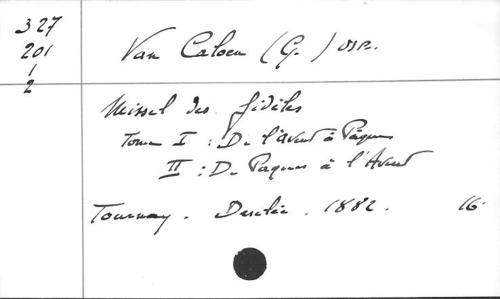 327
201
1
2
Van Caloen (G.) OSB.
Missel des fidèles
Tome I : De l'avent à Pâques
II : De Paques à l'Avent
Tournay. Desclée. 1882. 16